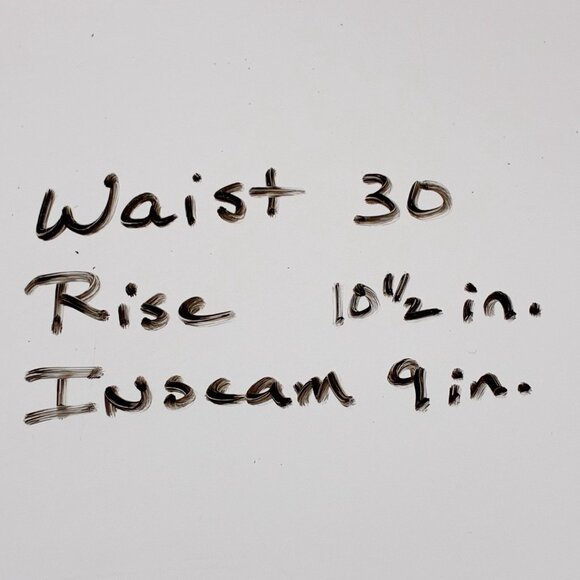 Waist 30
Rise 10 1/2 in.
Inseam 9 in.